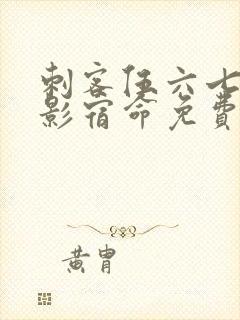 刺客伍六七
影宿命免费
黄胄